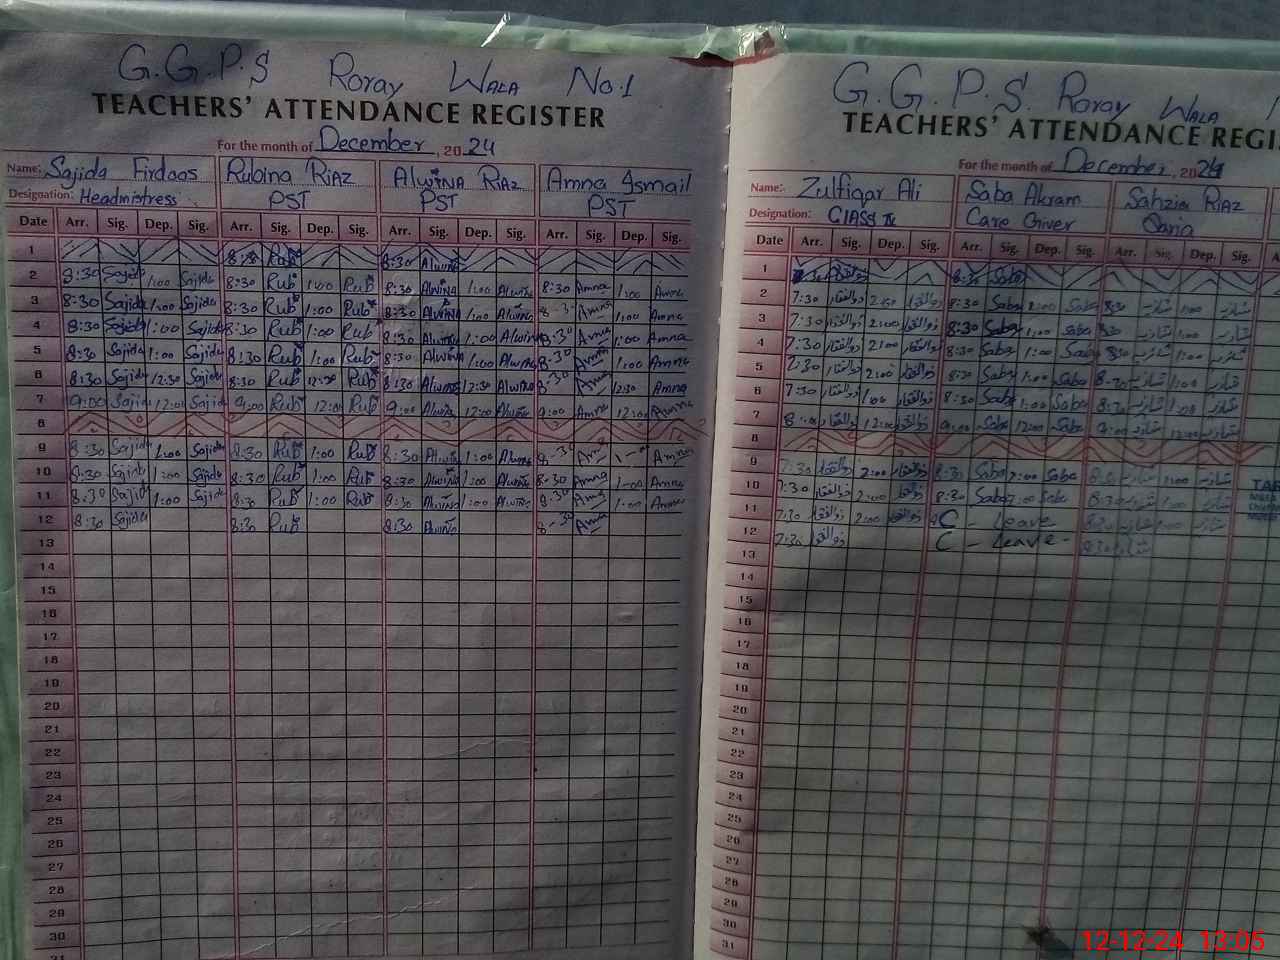 G.G.P.S Roray WALA No.1
TEACHERS' ATTENDANCE REGISTER
For the month of December, 2024
Name: Sajida Firdaos Rubina RIAZ AlwiNA RIAZ Amna Ismail
Designation: Headmistress PST PST PST
Date Arr. Sig. Dep. Sig. Arr. Sig. Dep. Sig. Arr. Sig. Dep. Sig. Arr. Sig. Dep. Sig.
1 8:30 Rub 8:30 Alwina
2 8:30 Sajida 1:00 Sajida 8:30 Rub 1:00 Rub 8:30 Alwina 1:00 Alwina 8:30 Amna 1:00 Amna
3 8:30 Sajida 1:00 Sajida 8:30 Rub 1:00 Rub 8:30 Alwina 1:00 Alwina 8-30 Amna 1:00 Amna
4 8:30 Sajida 1:00 Sajida 8:30 Rub 1:00 Rub 8:30 Alwina 1:00 Alwina 8-30 Amna 1:00 Amna
5 8:30 Sajida 1:00 Sajida 8:30 Rub 1:00 Rub 8:30 Alwina 1:00 Alwina 8-30 Amna 1:00 Amna
6 8:30 Sajida 12:30 Sajida 8:30 Rub 12:30 Rub 8:30 Alwina 12:30 Alwina 8-30 Amna 12:30 Amna
7 9:00 Sajida 12:00 Sajida 9:00 Rub 12:00 Rub 9:00 Alwina 12:00 Alwina 9:00 Amna 12:00 Amna
8
9 8:30 Sajida 1:00 Sajida 8:30 Rub 1:00 Rub 8:30 Alwina 1:00 Alwina 8-30 Amna 1-00 Amna
10 8:30 Sajida 1:00 Sajida 8:30 Rub 1:00 Rub 8:30 Alwina 1:00 Alwina 8-30 Amna 1-00 Amna
11 8:30 Sajida 1:00 Sajida 8:30 Rub 1:00 Rub 8:30 Alwina 1:00 Alwina 8-30 Amna 1:00 Amna
12 8:30 Sajida 8:30 Rub 8:30 Alwina 8-30 Amna
13
14
15
16
17
18
19
20
21
22
23
24
25
26
27
28
29
30
31
G.G.P.S. Roray WALA
TEACHERS' ATTENDANCE REGI
For the month of December, 2024
Name: Zulfiqar Ali Saba Akram Sahzia RIAZ
Designation: CLASS IV Care Giver
Date Arr. Sig. Dep. Sig. Arr. Sig. Dep. Sig. Arr. Sig. Dep. Sig.
1 7:30 ذوالفقار 8:30 Saba
2 7:30 ذوالفقار 2:00 ذوالفقار 8:30 Saba 1:00 Saba 8:30 شازیہ 1:00 شازیہ
3 7:30 ذوالفقار 2:00 ذوالفقار 8:30 Saba 1:00 Saba 8:30 شازیہ 1:00 شازیہ
4 7:30 ذوالفقار 2:00 ذوالفقار 8:30 Saba 1:00 Saba 8:30 شازیہ 1:00 شازیہ
5 7:30 ذوالفقار 2:00 ذوالفقار 8:30 Saba 1:00 Saba 8:30 شازیہ 1:00 شازیہ
6 7:30 ذوالفقار 1:00 ذوالفقار 8:30 Saba 1:00 Saba 8:30 شازیہ 1:00 شازیہ
7 8:00 ذوالفقار 12:00 ذوالفقار 9:00 Saba 12:00 Saba 9:00 شازیہ 12:00 شازیہ
8
9 7:30 ذوالفقار 2:00 ذوالفقار 8:30 Saba 2:00 Saba 8:30 شازیہ 1:00 شازیہ
10 7:30 ذوالفقار 2:00 ذوالفقار 8:30 Saba 2:00 Saba 8:30 شازیہ 1:00 شازیہ
11 7:30 ذوالفقار 2:00 ذوالفقار C - Leave 8:30 شازیہ 1:00 شازیہ
12 7:30 ذوالفقار C - Leave - 8:30 شازیہ
13
14
15
16
17
18
19
20
21
22
23
24
25
26
27
28
29
30
31
12-12-24 13:05